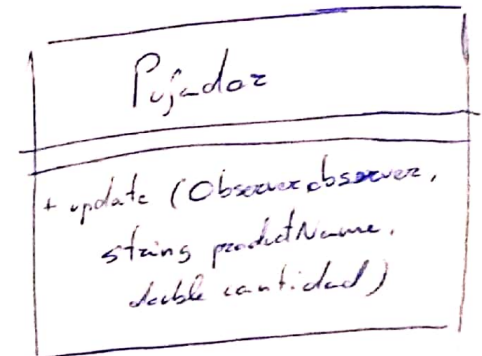 Pujador
+ update (Observer observer,
string productName,
double cantidad)